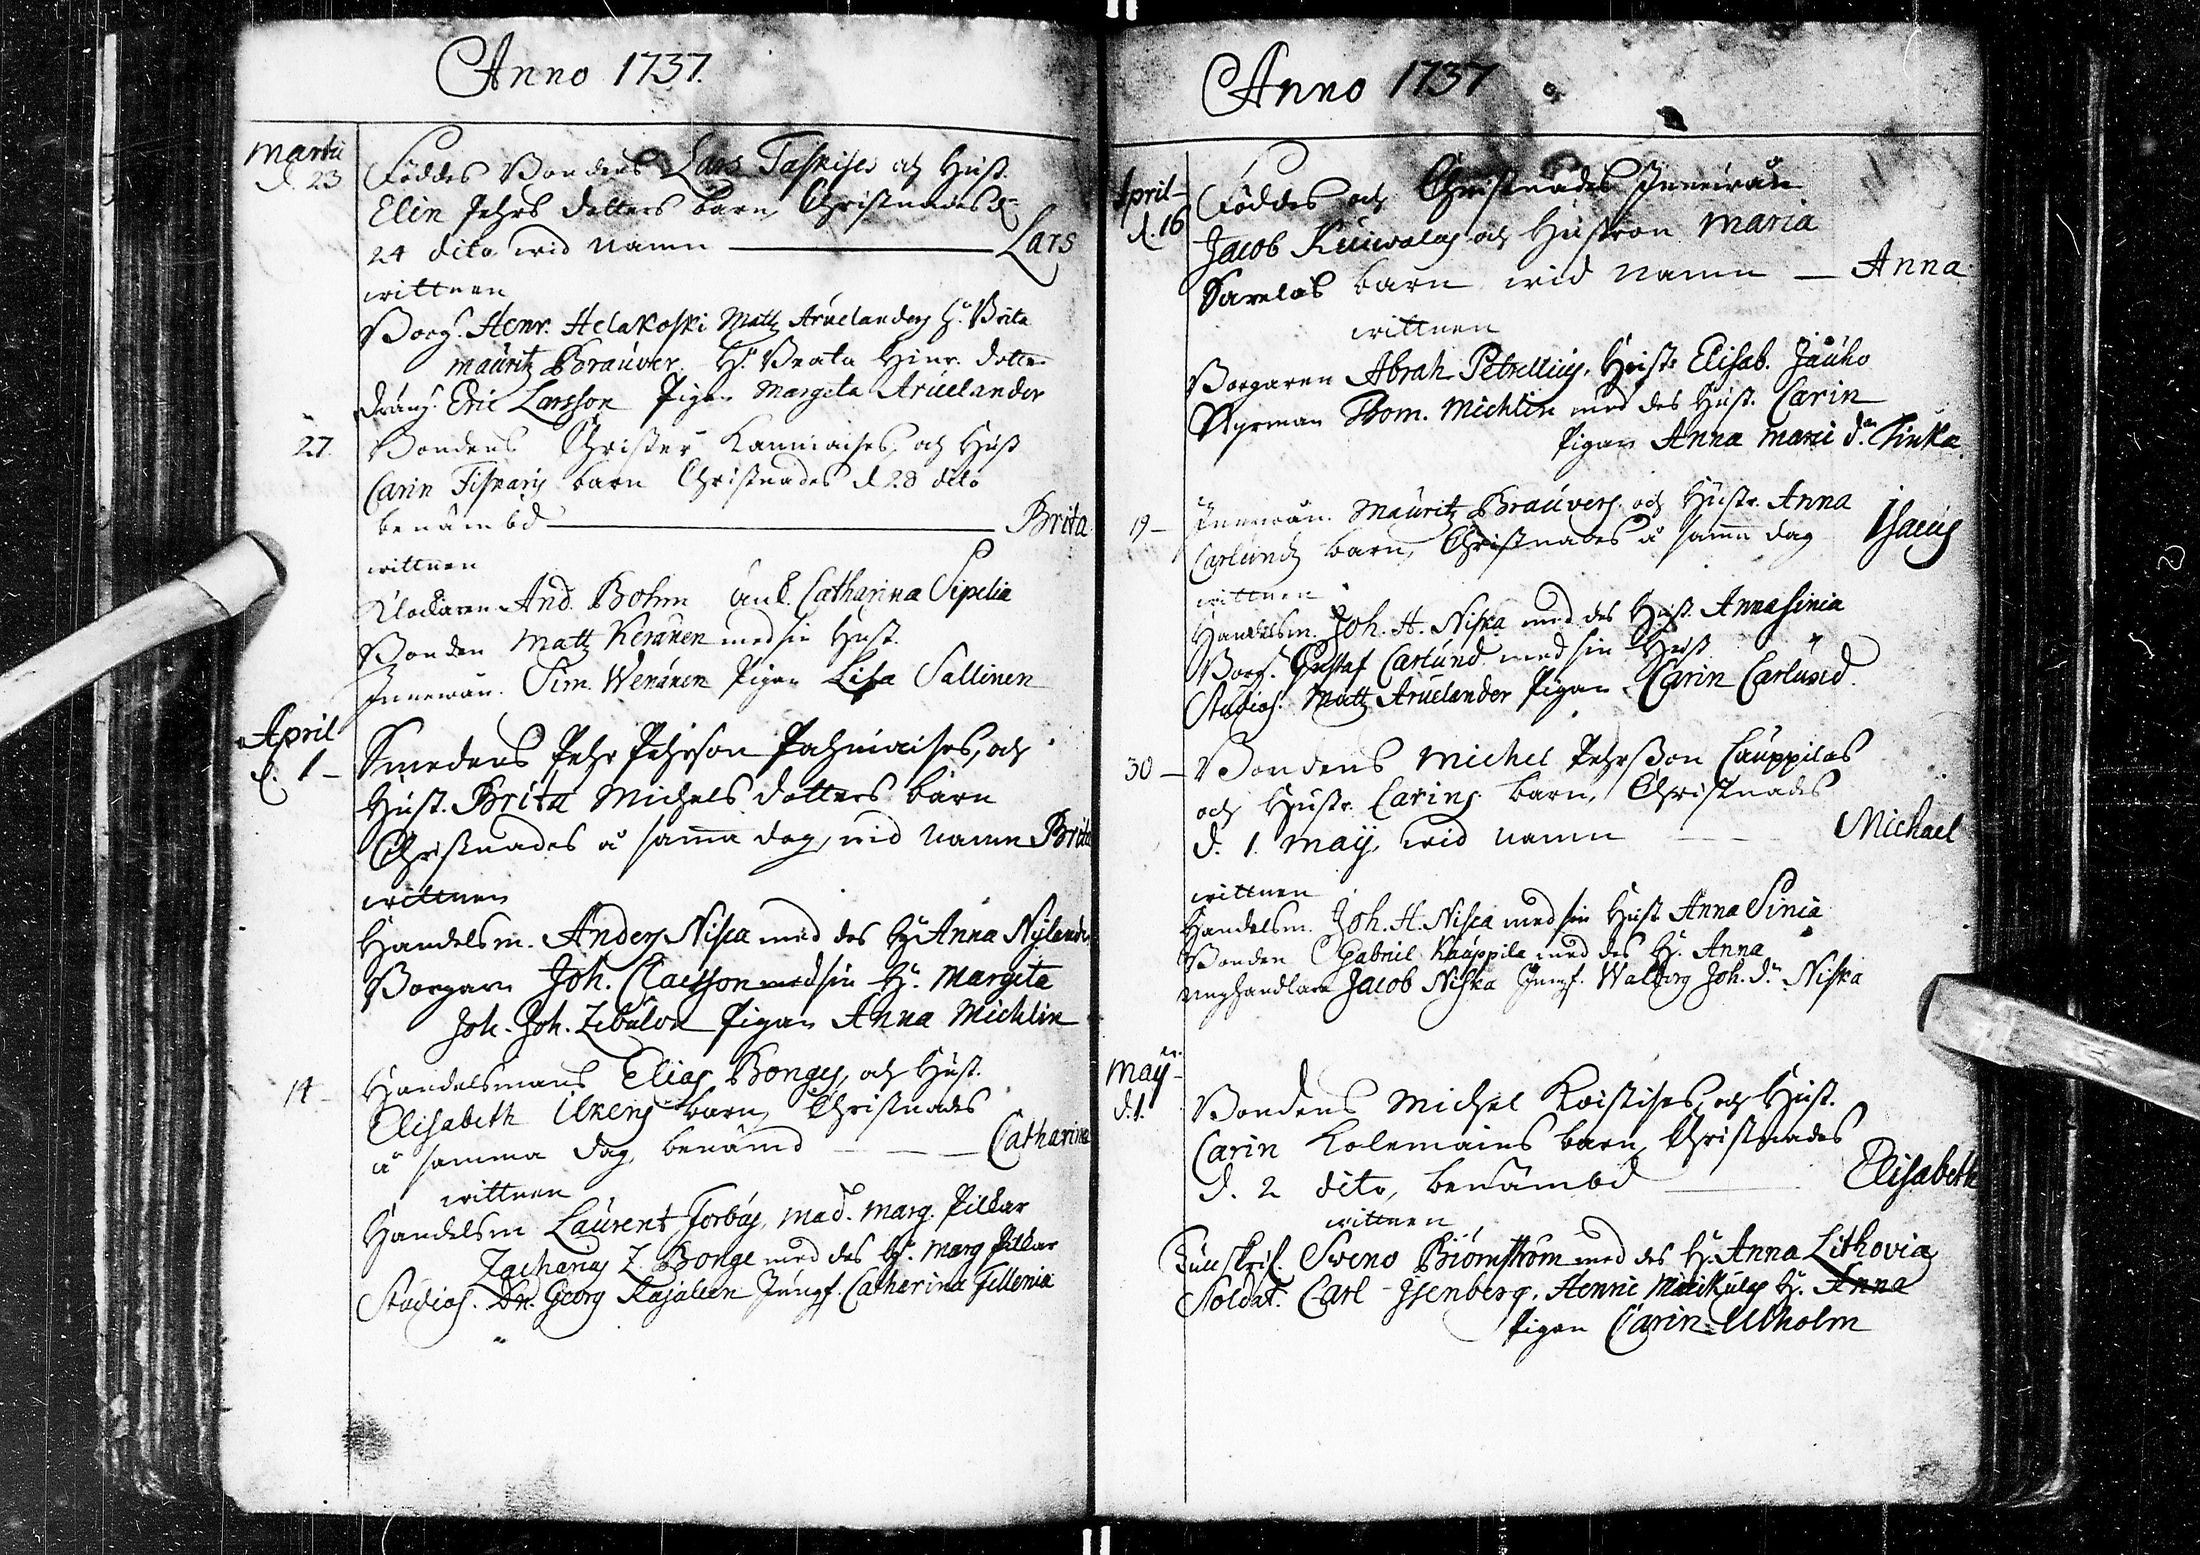 Anno 1737.
Martii
d. 23
Föddes Bondens Lars Taskises och Hust.
Elin Pehrs dotters barn, Christnades d.
24 dito wid namn Lars
wittnen
Borg. Henr. Helakoski Matts Aruelanders h. Brita
Mauritz Brauver. H. Beata Hinr. dotter
dräng. Eric Larsson Pigan Margeta Aruelander
27.
Bondens Christer och Hust
Carin barn Christnades d 28 dito
benämbd Brita
wittnen
Klockaren And. Bohm Catharina Sipelia
Bonden Matts Keränen med sin Hust.
Innewån. Sim. Wenänen Pigan Lisa Sallinen
April
d. 1
Smedens Pehr Pehrson och
Hust. Brita Michels dotters barn
Christnades å samma dag, wid namn Brita
wittnen
Handelsm. Anders Nisca med des h Anna Nylander
Borgare Joh. Claesson med sin H. Margeta
Joh. Joh. Zebulon Pigan Anna Michlin
14
Handelsmans Elias Bonges, och Hust.
Elisabeth Ukens barn, Christnades
å samma dag, benämd Catharina
wittnen
Handelsm Laurent Forbus, Mad. Marg. Pilkar
Zacharias Z. Bonge med des h. Marg Pilkar
Studios. Dn. Georg Kajaleen Jungf. Catharina Fellenia
Anno 1737
April
d. 16
Föddes och Christnades Innewån
Jacob och Hustron Maria
Sarelas barn wid namn Anna
wittnen
Borgaren Abrah Petrellius, Hustr Elisab. Jauho
Styrman Thom. Michlin med des Hust. Carin
Pigan Anna Marci d. Tinka
19
Innewån. Mauritz Brauvers. och Hustr. Anna
Carlunds barn, Christnades å samma dag Isacus
wittnen
Handelsm. Joh. H. Niska med des Hust. Anna Sinia
Borg. Gustaf Carlund med sin Hust
Studios. Matts Aruelander Pigan Carin Carlund.
30
Bondens Michel Pehrsson Cauppilas
och Hustr. Carins barn, Christnades
d. 1. Maij, wid namn Michael
wittnen
Handelsm. Joh. H. Nisca med sin Hust Anna Sinia
Bonden Gabriel Kauppila med des H. Anna
Jacob Niska Jungf. Walborg Joh. d. Niska
Maij
d. 1.
Bondens Michel Koistises, och Hust.
Carin barn, Christnades
d. 2 dito, benämbd Elisabeth
wittnen
Sweno Biörnström med des H. Anna Lithovia
Soldat. Carl Isenberg, Henric h. Anna
Pigan Carin Ulholm